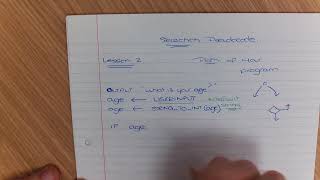 Selection Pseudocode
Lesson 2
Plan of your
program
OUTPUT "what is you age"
age ← USERINPUT
age ← STRING_TO_INT(age)
IF age